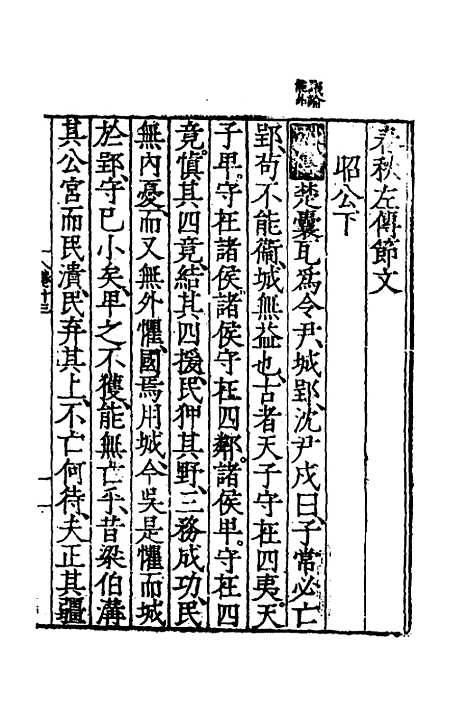 春秋左傳節文
昭公下
楚囊瓦爲令尹、城郢、沈尹戌曰、子常必亡
郢、苟不能衞、城無益也、古者天子守在四夷、天
子卑。守在諸侯、諸侯守在四鄰。諸侯卑。守在四
竟、愼其四竟、結其四援、民狎其野、三務成功、民
無內憂、而又無外懼、國焉用城、今吳是懼而城
於郢、守已小矣、卑之不獲、能無亡乎、昔梁伯溝
其公宮而民潰、民弃其上、不亡何待、夫正其疆
卷十三